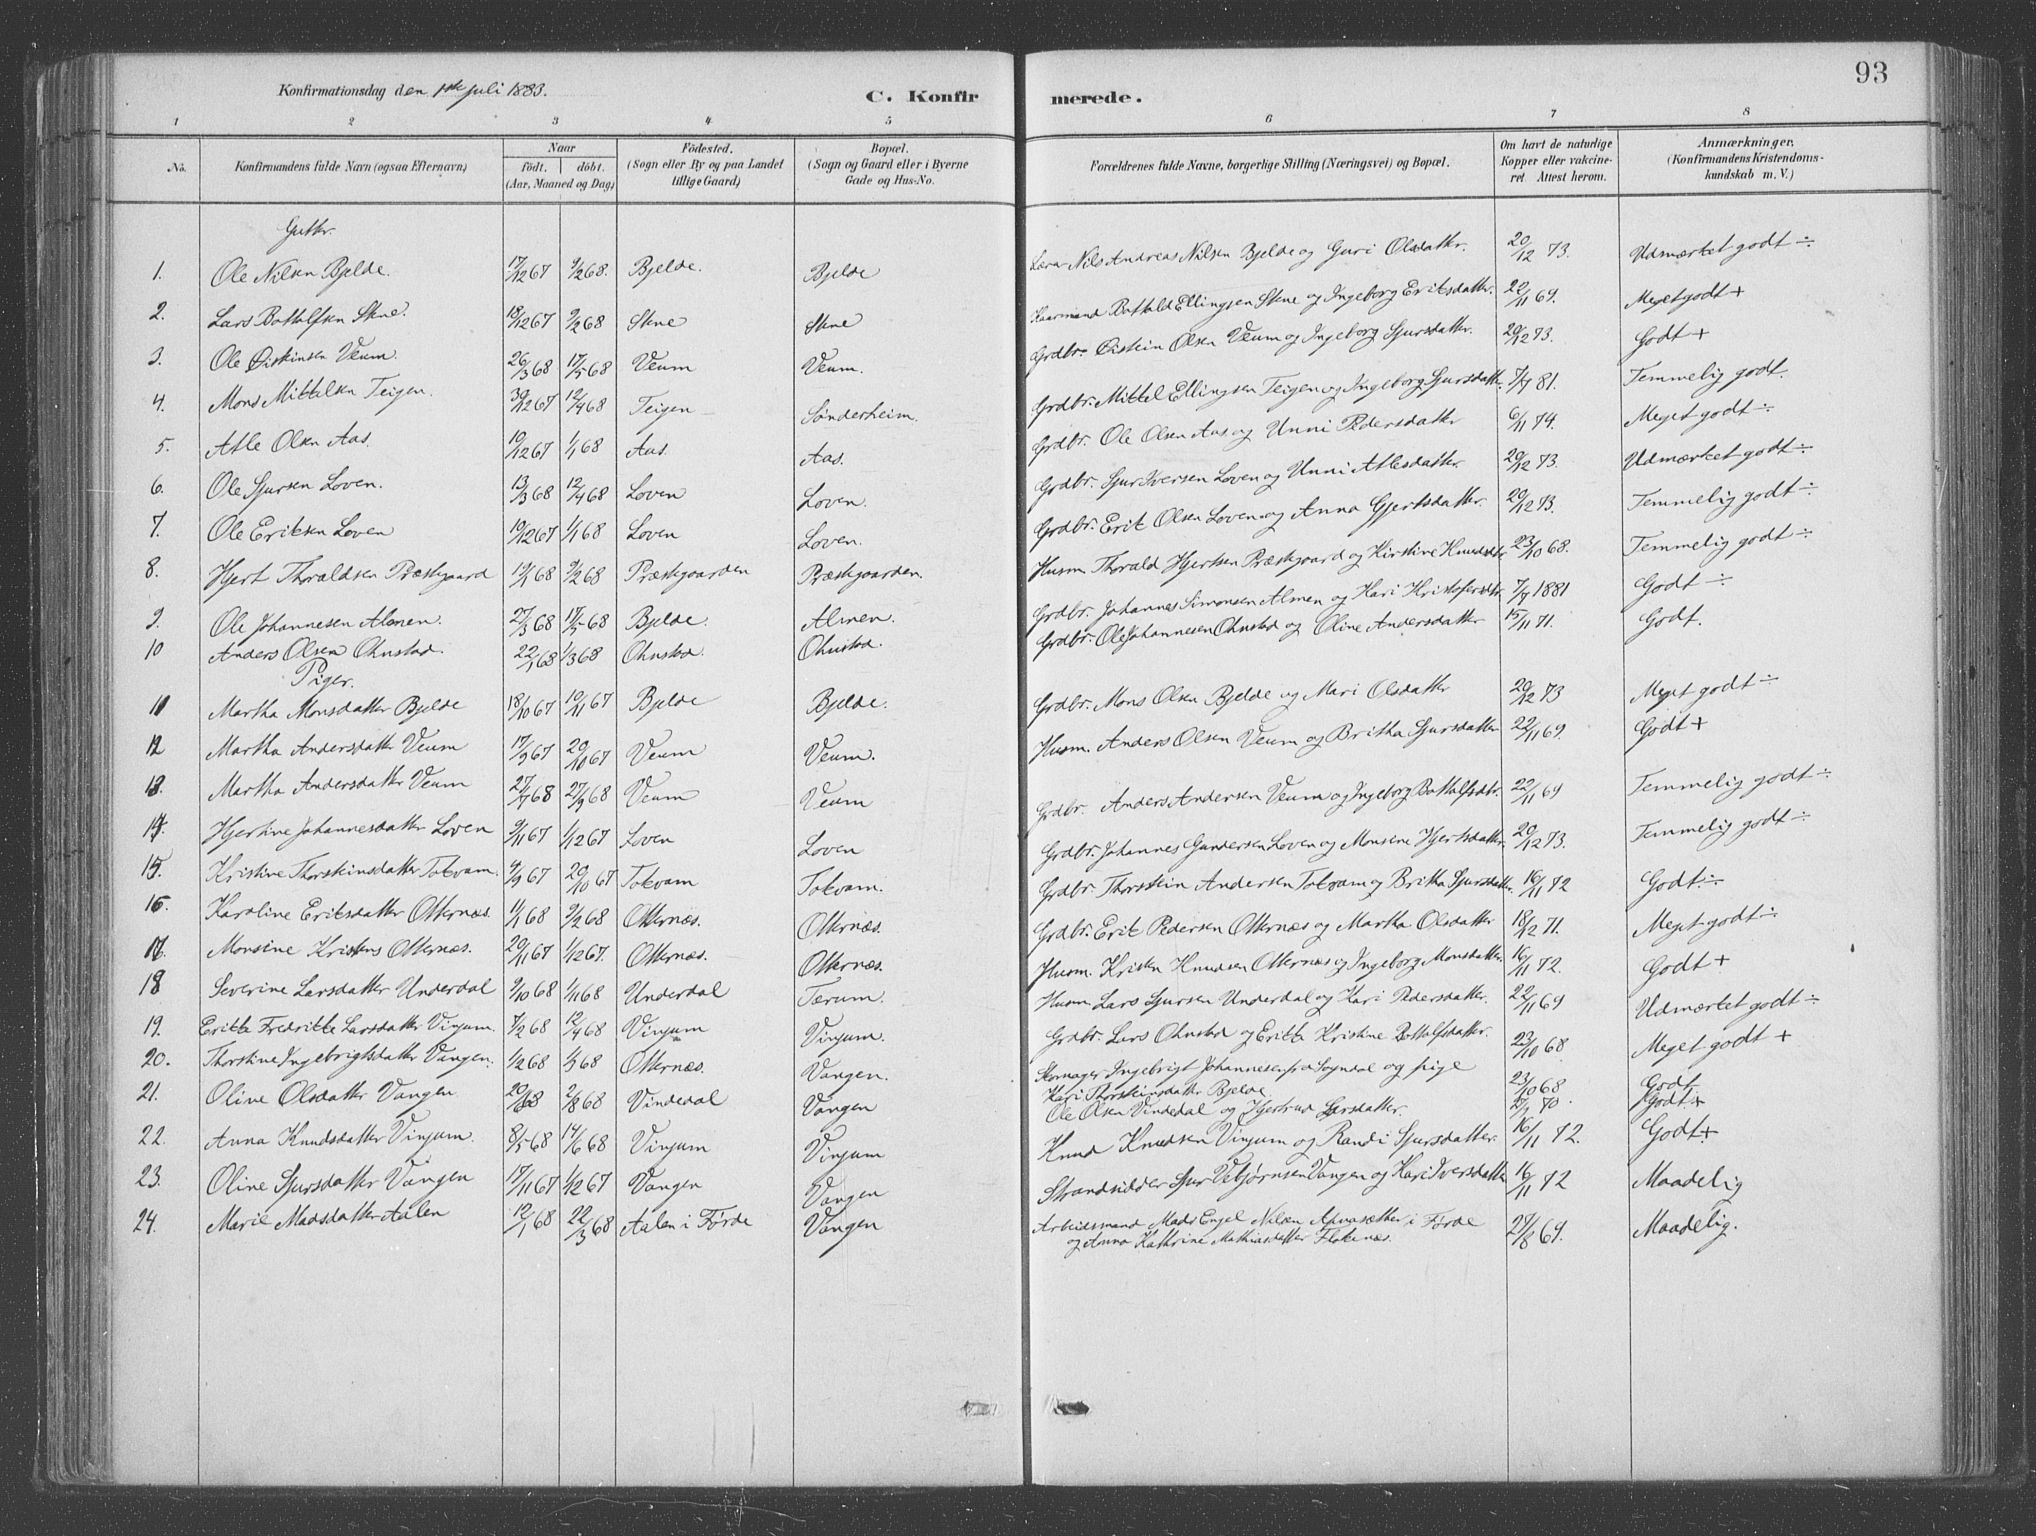 93
Konfirmationsdag den 1ste Juli 1883.
C. Konfirmerede.
1 2 3 4 5 6 7 8
No. Konfirmandens fulde Navn (ogsaa Efternavn) Naar født. døbt. (Aar, Maaned og Dag) Födested. (Sogn eller By og paa Landet tillige Gaard) Bopæl. (Sogn og Gaard eller i Byerne Gade og Hus-No. Forældrenes fulde Navne, borgerlige Stilling (Næringsvei) og Bopæl. Om havt de naturlige Kopper eller vakcineret Attest herom. Anmærkninger. (Konfirmandens Kristendomskundskab m. V.)
Gutter.
1. Ole Nilsen Bjelde. 17/12 67 9/2 68. Bjelde. Bjelde Nils Andreas Nilsen Bjelde og Guri Olsdatter. 20/12 73. Udmærket godt ÷
2. Lars Bottolfsen Skne. 18/12 67 9/2 68 Skne Skne Kaarmand Bottold Ellingsen Skne og Ingeborg Eriksdatter. 22/11 69. Meget godt +
3. Ole Øisteinsen Veum. 26/3 68 17/5 68 Veum Veum. Grdbr. Øistein Olsen Veum og Ingeborg Sjursdatter. 20/12 73. Godt +
4. Mons Mittelsen Teigen. 30/12 67 12/4 68 Teigen Sønderheim. Grdbr. Mittel Ellingsen Teigen og Ingeborg Sjursdatter. 7/7 81. Temmelig godt.
5. Atle Olsen Aas. 10/12 67 1/1 68 Aas. Aas. Grdbr. Ole Olsen Aas og Unni Pedersdatter 6/11 74. Meget godt ÷
6. Ole Sjursen Loven. 13/3 68 12/4 68 Loven Loven. Grdbr. Sjur Iversen Loven og Unni Atlesdatter. 20/12 73. Udmærket godt ÷
7. Ole Eriksen Loven 10/12 67 1/1 68 Loven Loven. Grdbr. Erik Olsen Loven og Anna Gjertsdatter. 20/12 73. Temmelig godt ÷
8. Hjert Thoraldsen Præstgaard 11/1 68 9/2 68 Præstgaarden Præstgaarden. Husm. Thorald Hjertsen Præstgaard og Kirstine Knudsdtr 23/10 68. Temmelig godt ÷
9. Ole Johannesen Almen. 27/3 68 17/5 68 Bjelde. Almen. Grdbr. Johannes Simonsen Almen og Kari Kristofersdtr 7/7 1881 Godt ÷
10 Anders Olsen Ohnstad. 22/1 68 1/3 68 Ohnstad. Ohnstad. Grdbr. Ole Johannesen Ohnstad og Oline Andersdatter 15/11 71. Godt.
Piger.
11 Martha Monsdatter Bjelde 18/10 67 10/11 67 Bjelde Bjelde. Grdbr. Mons Olsen Bjelde og Mari Olsdatter 20/12 73 Meget godt ÷
12 Martha Andersdatter Veum 17/9 67 20/10 67 Veum Veum. Husm. Anders Olsen Veum og Britha Sjursdatter 22/11 69. Godt +
13. Martha Andersdatter Veum 27/7 68 27/9 68 Veum Veum Grdbr. Anders Andersen Veum og Ingeborg Bottolfsdtr. 22/11 69 Temmelig godt ÷
14. Hjertine Johannesdatter Loven 9/11 67 1/12 67 Loven Loven Grdbr. Johannes Gundersen Loven og Monsine Hjertsdatter. 20/12 73. Temmelig godt ÷
15. Kristine Thorsteinsdatter Tokvam. 4/9 67 20/10 67 Tokvam Tokvam. Grdbr. Thorstein Andersen Tokvam og Britha Sjursdatter. 16/11 72 Godt ÷
16. Karoline Eriksdatter Otternæs. 1/1 68 9/2 68 Otternæs. Otternæs. Grdbr. Erik Pedersen Otternæs og Martha Olsdatter 18/12 71. Meget godt ÷
17. Monsine Kristens Otternæs. 20/11 67 1/12 67. Otternæs. Otternæs. Husm. Kristen Knudsen Otternæs og Ingeborg Monsdatter. 16/11 72. Godt +
18 Severine Larsdatter Underdal 9/10 68 1/11 68 Underdal Tærum. Husm Lars Sjursen Underdal og Kari Pedersdatter. 22/11 69 Udmærket godt ÷
19. Eritte Fredrikke Larsdatter Vinjum. 7/2 68 12/4 68 Vinjum Vinjum. Grdbr. Lars Ohnstad og Eritte Kristine Bottolfsdatter. 23/10 68. Meget godt +
20. Thorstine Ingebrigtsdatter Vangen. 1/2 68 1/3 68 Otternæs. Vangen. Skomager Ingebrigt Johannesen fra Sogndal og pige Kari Thorsteinsdatter Bjelde 23/10 68 Godt
21. Oline Olsdatter Vangen 20/6 68 2/8 68 Vindedal Vangen Ole Olsen Vindedal og Hjertrud Larsdatter. 27/7 70. Godt +
22. Anna Knudsdatter Vinjum. 8/5 68 14/6 68 Vinjum Vinjum Knud Knudsen Vinjum og Randi Sjursdatter. 16/11 72. Godt +
23. Oline Sjursdatter Vangen 17/11 67 1/12 67 Vangen Vangen Strandsidder Sjur Vebjørnsen Vangen og Kari Iversdatter 16/11 72 Maadelig
24. Marie Madsdatter Aalen 12/1 68 22/3 68 Aalen i Førde Vangen Arbeidsmand Mads Engel Nilsen i Førde og Anna Kathrine Mathiasdatter Flokenæs. 27/8 69. Maadelig.